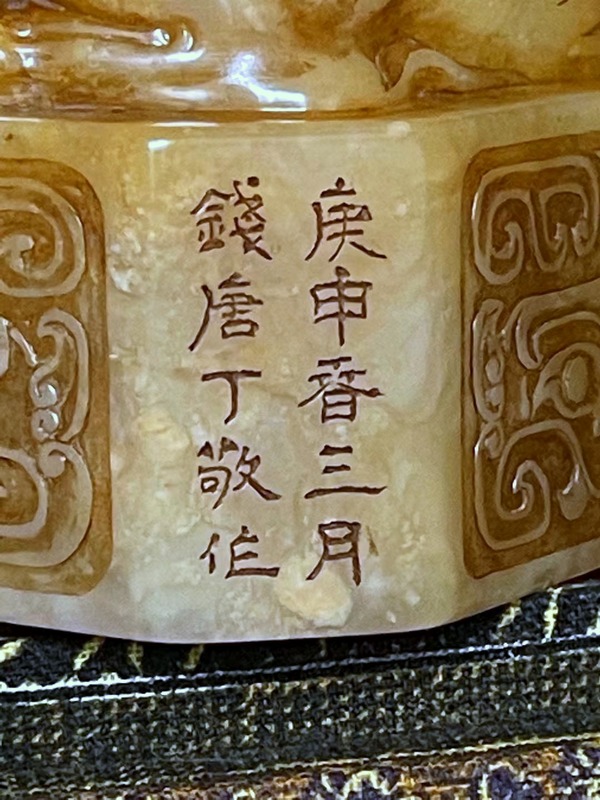 庚申春三月
錢唐丁敬作